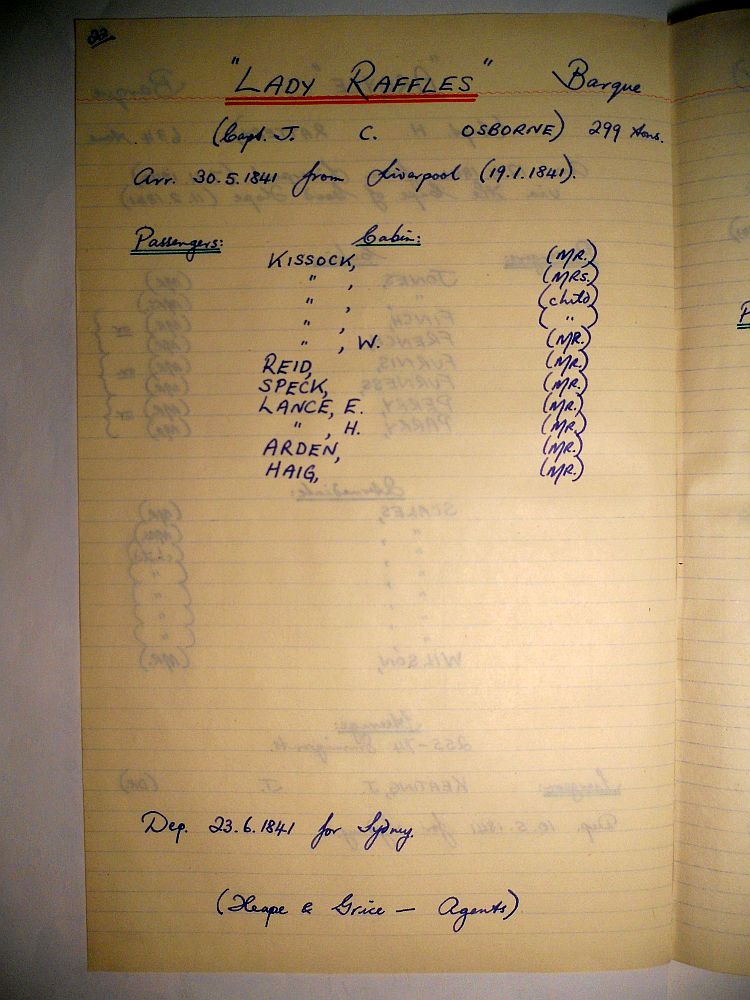 22
"LADY RAFFLES" Barque
(Capt. J. C. OSBORNE) 299 tons.
Arr. 30.5.1841 from Liverpool (19.1.1841).
Passengers: Cabin:
KISSOCK, (MR.)
" , (MRS.)
" , (child)
" , ( " )
" , W. (MR.)
REID, (MR.)
SPECK, (MR.)
LANCE, E. (MR.)
" , H. (MR.)
ARDEN, (MR.)
HAIG, (MR.)
Dep. 23.6.1841 for Sydney.
(Heape & Grice — Agents)